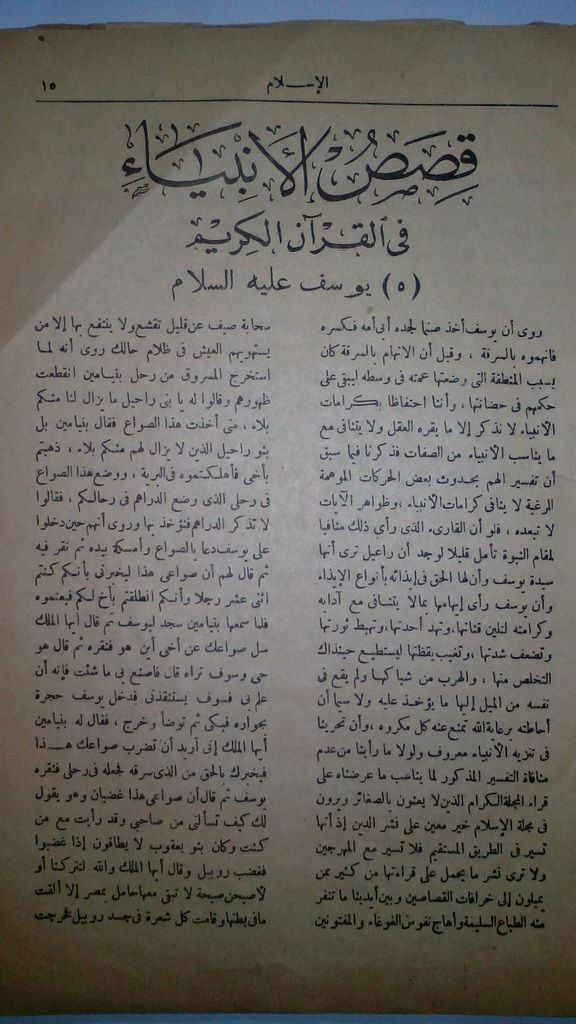 ١٥
الإســـلام
قِصَصُ الأَنْبِيَاءِ
فى القرآن الكريم
(٥) يوسف عليه السلام
روى أن يوسف أخذ صنما لجده أبى أمه فكسره
فاتهموه بالسرقة ، وقيل أن الاتهام بالسرقة كان
بسبب المنطقة التى وضعتها عمته فى وسطه ليبقى على
حكمهم فى حضانتها ، وأننا احتفاظا بكرامات
الأنبياء لا نذكر إلا ما يقره العقل ولا يتنافى مع
ما يناسب الأنبياء من الصفات فذكرنا فيما سبق
أن تفسير الهم بحدوث بعض الحركات الموهمة
المرغبة لا ينافى كرامات الأنبياء ، وظواهر الآيات
لا تبعده ، فلو أن القارىء الذى رأى ذلك منافيا
لمقام النبوة تأمل قليلا لوجد أن راعيل ترى أنها
سيدة يوسف وأن لها الحق فى إيذائه بأنواع الإيذاء
وأن يوسف رأى إيهامها بمالا يتنافى مع آدابه
وكرامته لتلين قناتها ، وتهد أحدتها ، وتهبط ثورتها
وتضعف شدتها ، وتغيب يقظتها ليستطيع حينذاك
التخلص منها ، والهرب من شباكها ولم يقع فى
نفسه من الميل إليها ما يؤخذ عليه ولا سيما أن
أحاطته برعاية الله تمنع عنه كل مكروه ، وأن تحرينا
فى تنزيه الأنبياء معروف ولولا ما رأينا من عدم
منافاة التفسير المذكور لما يناسب ما عرضناه على
قراء المجلة الكرام الذين لا يعنون بالصغائر ويرون
فى مجلة الإسلام خير معين على نشر الدين إذ أنها
تسير فى الطريق المستقيم فلا تسير مع المهرجين
ولا ترى نشر ما يحمل على قراءتها من كثير ممن
يميلون إلى خرافات القصاصين وبين أيدينا ما تنفر
منه الطباع السليمة وأهاج نفوس الغوغاء والمفتونين
سحابة صيف عن قليل تقشع ولا ينتفع بها إلا من
يستهويهم العيش فى ظلام حالك روى أنه لما
استخرج المسروق من رحل بنيامين انقطعت
ظهورهم وقالوا له يا بنى راحيل ما يزال لنا منكم
بلاء ، متى أخذت هذا الصواع فقال بنيامين بل
بنو راحيل الذين لا يزال لهم منكم بلاء ، ذهبتم
بأخى فأهلكتموه فى البرية ، ووضع هذا الصواع
فى رحلى الذى وضع الدراهم فى رحالكم ، فقالوا
لا تذكر الدراهم فنؤخذ بها وروى أنهم حين دخلوا
على يوسف دعا بالصواع وأمسكه بيده ثم نقر فيه
ثم قال لهم أن صواعى هذا ليخبرنى بأنكم كنتم
اثنى عشر رجلا وأنكم انطلقتم بأخ لكم فبعتموه
فلما سمعها بنيامين سجد ليوسف ثم قال أيها الملك
سل صواعك عن أخى أين هو فنقره ثم قال هو
حى وسوف تراه قال فاصنع بى ما شئت فإنه أن
علم بى فسوف يستنقذنى فدخل يوسف حجرة
بجواره فبكى ثم توضأ وخرج ، فقال له بنيامين
أيها الملك إنى أريد أن تضرب صواعك هـــذا
فيخبرك بالحق من الذى سرقه فجعله فى رحلى فنقره
يوسف ثم قال أن صواعى هذا غضبان وهو يقول
لك كيف تسألنى من صاحبى وقد رأيت مع من
كنت وكان بنو يعقوب لا يطاقون إذا غضبوا
فغضب روبيل وقال أيها الملك والله لتتركنا أو
لأصيحن صيحة لا تبقى معها حامل بمصر إلا ألقت
ما فى بطنها وقامت كل شعرة فى جسد روبيل فخرجت